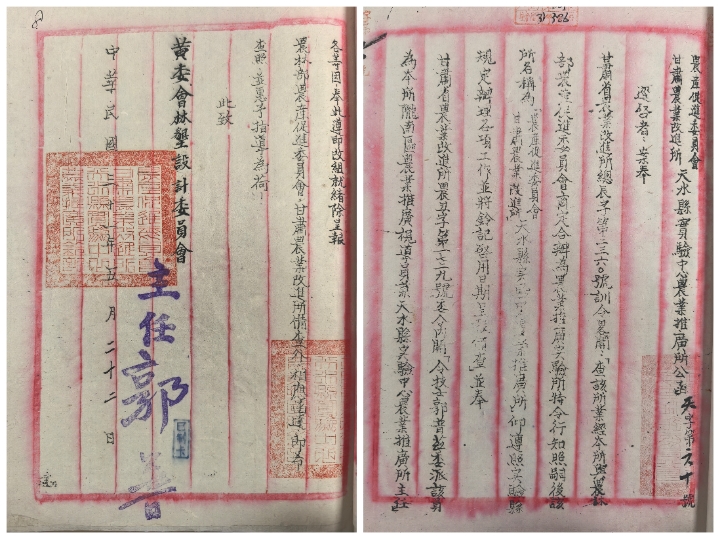 農產促進委員會
甘肅農業改進所 天水縣實驗中心農業推廣所公函 天字第六十號
逕啓者案奉
甘肅省農業改進所總天字第二三六〇號訓令畧開：查該所業經本所與農林
部農產促進委員會商定合辦為農業推廣實驗所特令行知照嗣後該
所名稱為農產促進委員會甘肅農業改進所天水縣實驗中心農業推廣所仰遵照實驗縣
規定辦理各項工作並將鈐記啓用日期呈報備查並奉
甘肅省農業改進所農丑字第一七二九號委令內開：「令技士郭普茲委派該員
為本所隴南區農業推廣視導員兼天水縣實驗中心農業推廣所主任
各等因奉此遵即改組就緒除呈報
農林部農產促進委員會，甘肅農業改進所備查外相應函達，即希
查照並惠予指導為荷：
此致
黃委會林墾設計委員會
主任郭普
中華民國三十一年五月二十二日
已制卡
3) 326